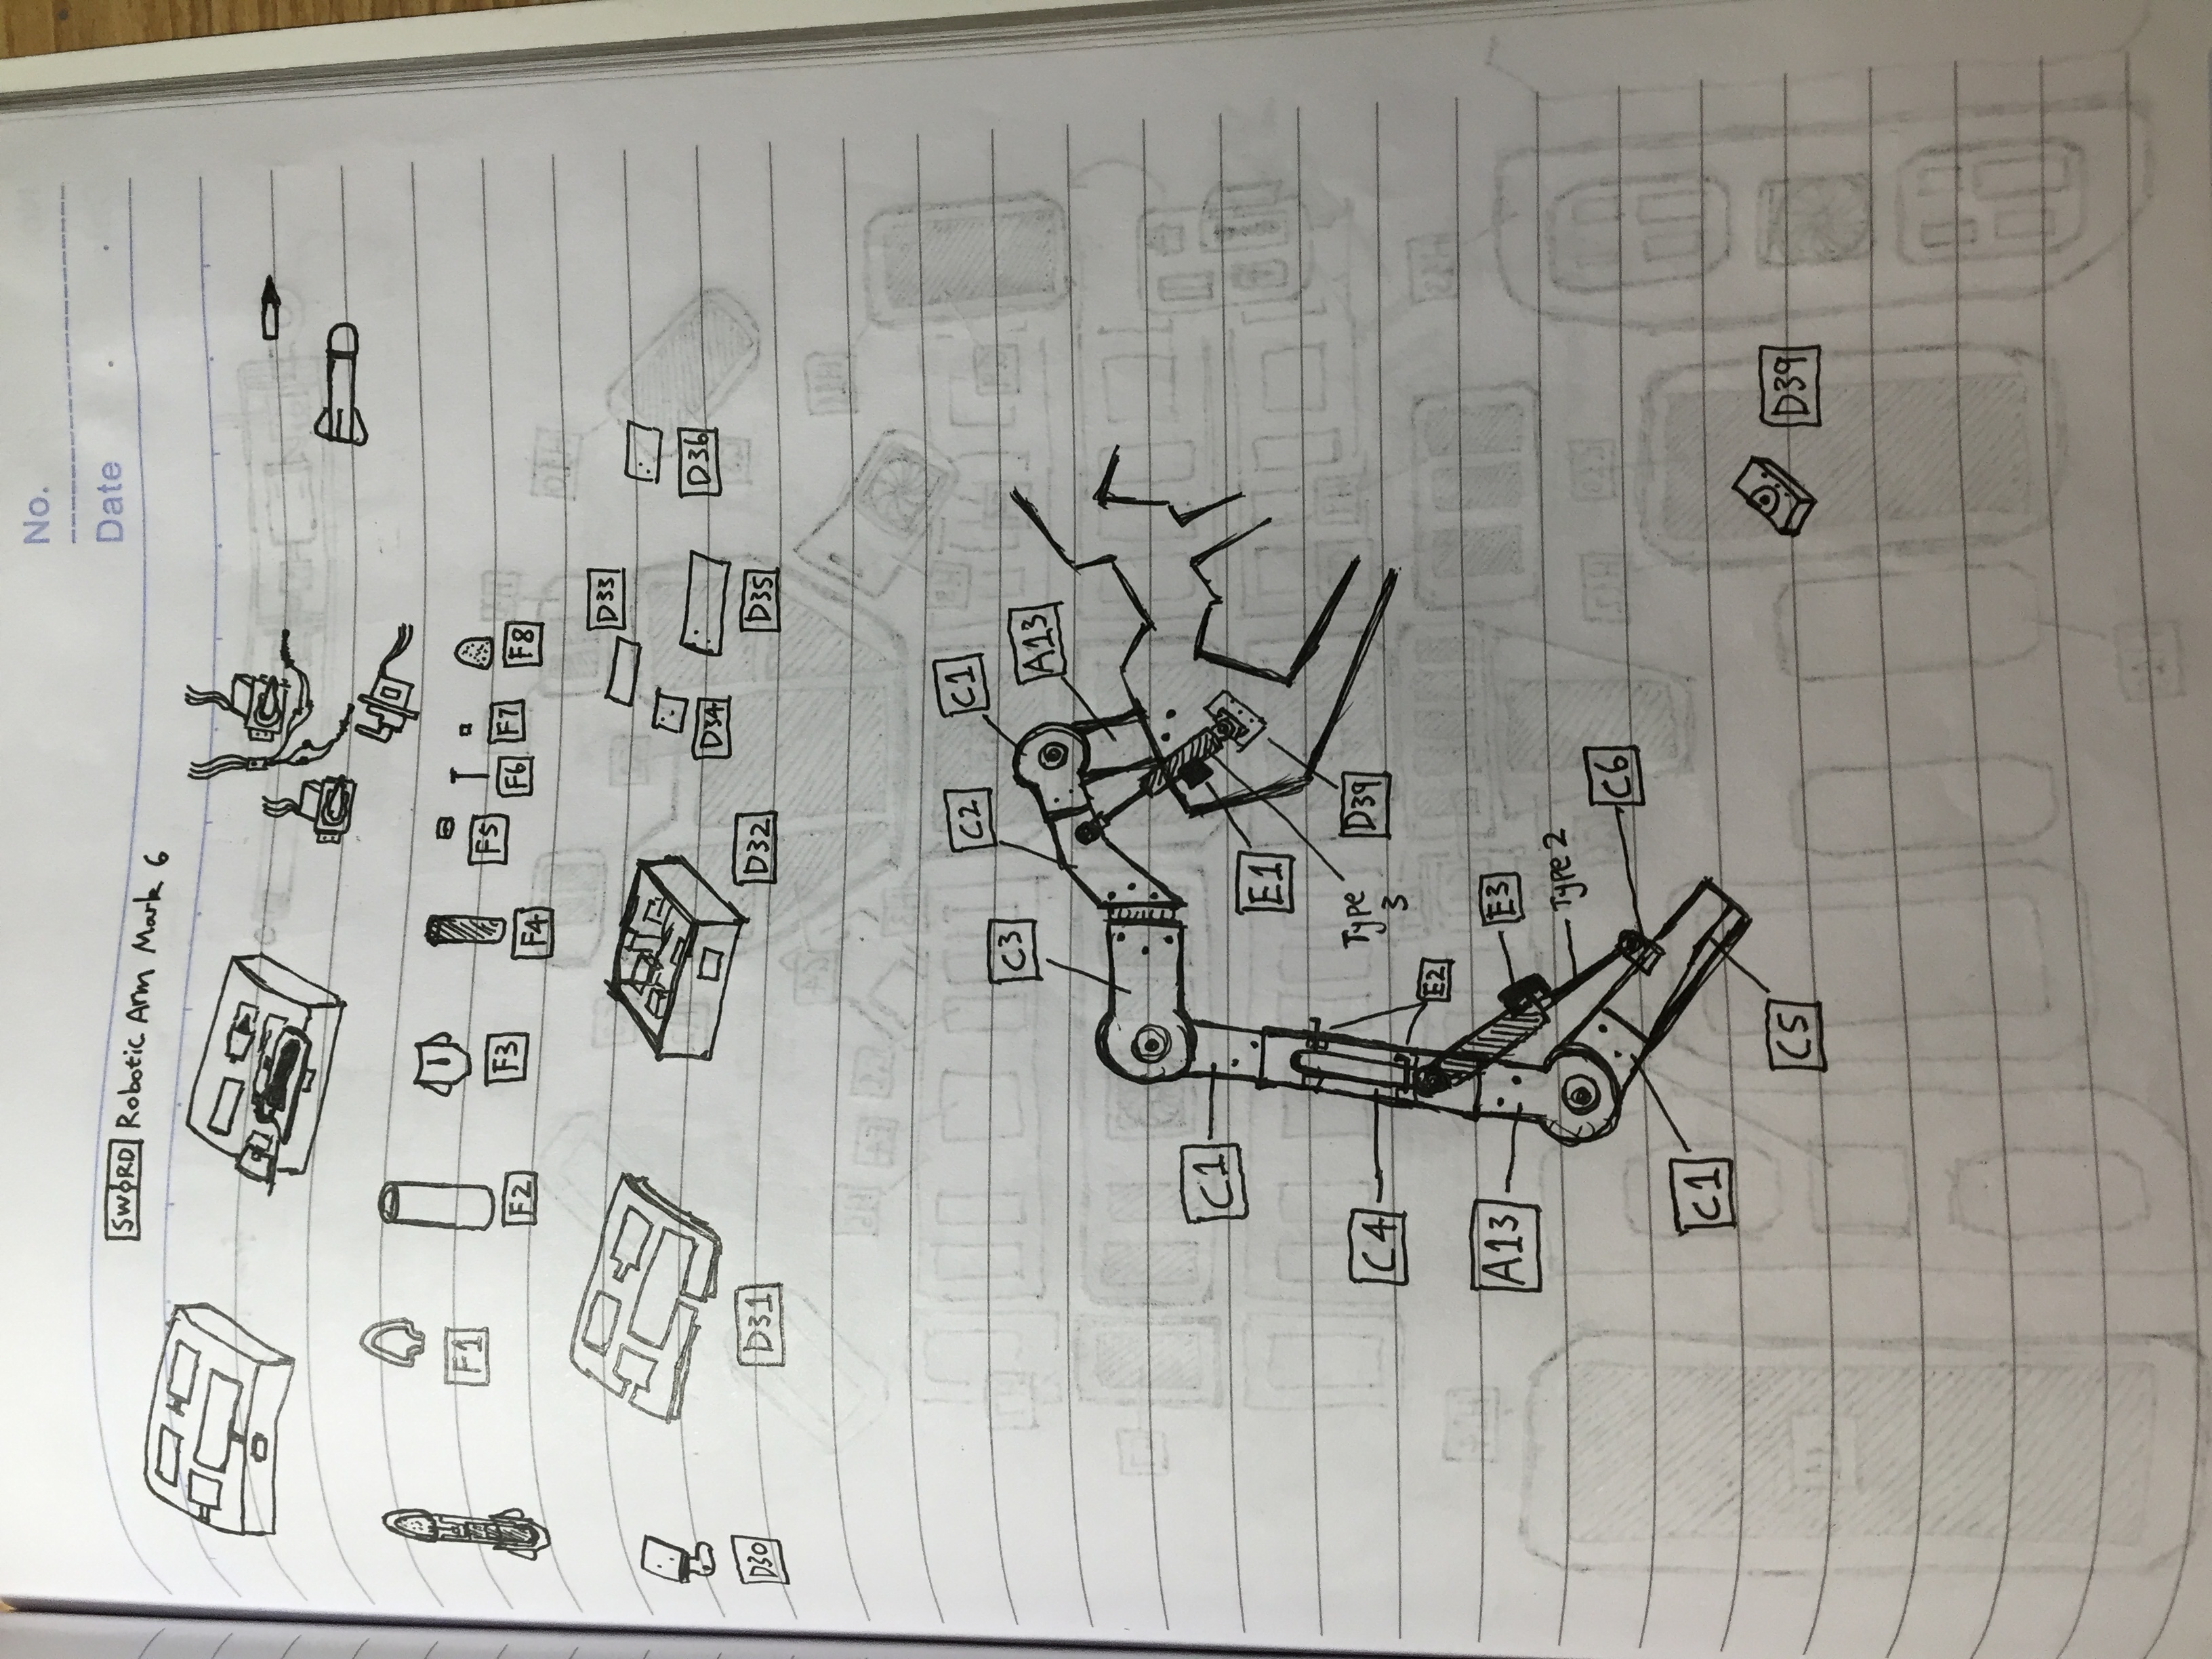 No.
Date
SWORD Robotic Arm Mark 6
F1
F2
F3
F4
F5
F6
F7
F8
D30
D31
D32
D33
D34
D35
D36
C3
C2
C1
A13
C1
E1
Type
3
D39
C4
E2
A13
E3
Type 2
C6
C1
C5
D39